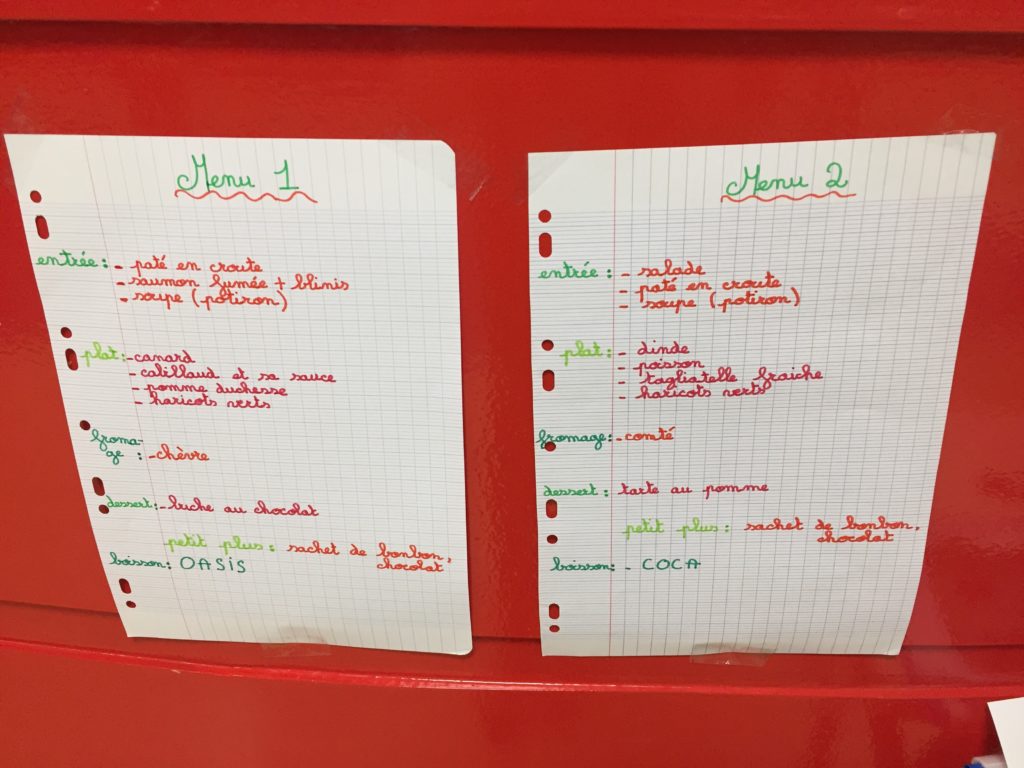 Menu 1
entrée : - paté en croute
- saumon fumée + blinis
- soupe (potiron)
plat : - canard
- calillaud et sa sauce
- pomme duchesse
- haricots verts
froma-
ge : - chèvre
dessert : - buche au chocolat
petit plus : sachet de bonbon,
chocolat
boisson : OASIS
Menu 2
entrée : - salade
- paté en croute
- soupe (potiron)
plat : - dinde
- poisson
- tagliatelle fraiche
- haricots verts
fromage : - comté
dessert : tarte au pomme
petit plus : sachet de bonbon,
chocolat
boisson : - COCA